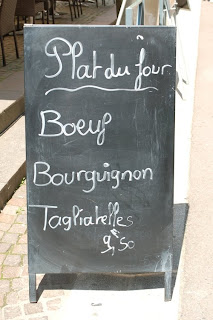 Plat du jour
Boeuf
Bourguignon
Tagliatelles
9€,50